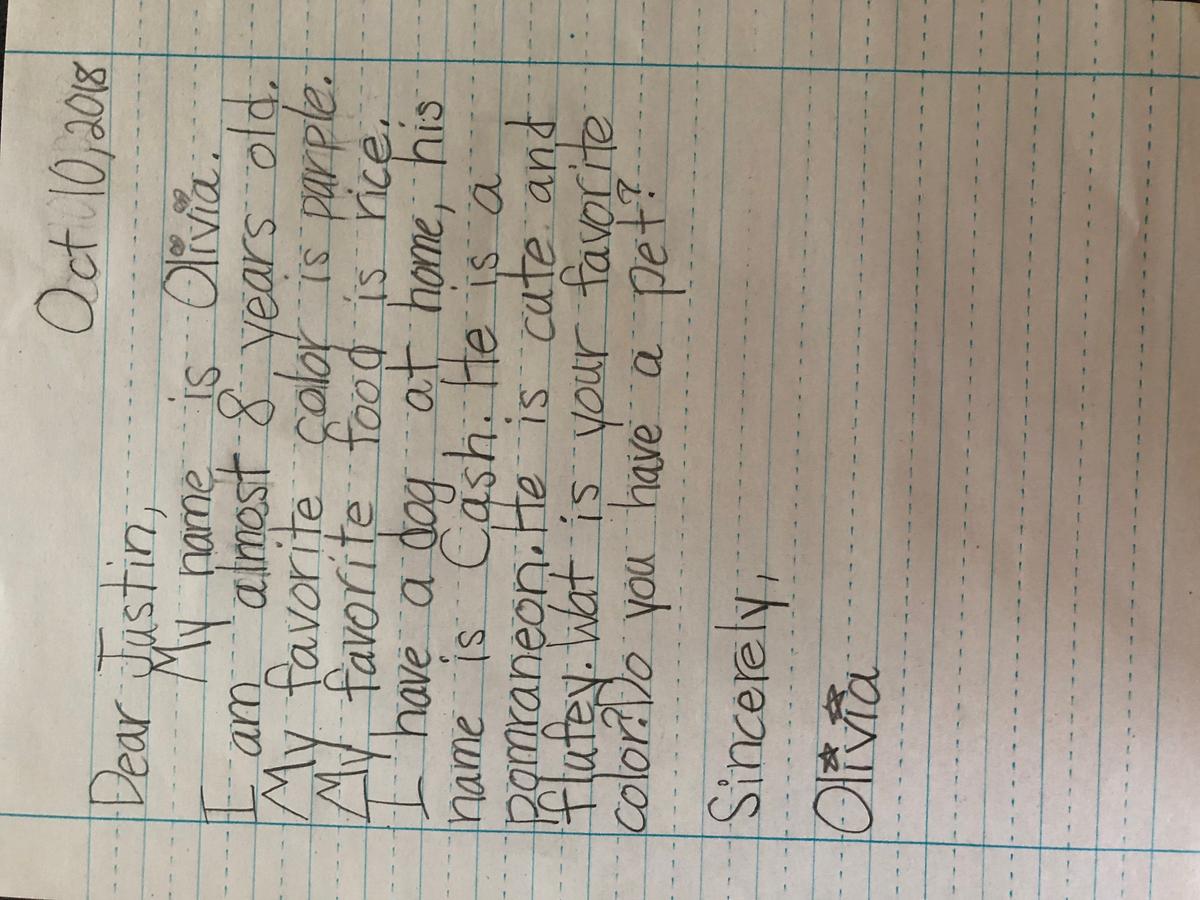 Oct 10, 2018
Dear Justin,
My name is Olivia.
I am almost 8 years old.
My favorite color is purple.
My favorite food is rice.
I have a dog at home, his
name is Cash. He is a
pomraneon. He is cute and
flufey. Wat is your favorite
color? Do you have a pet?
Sincerely,
Olivia